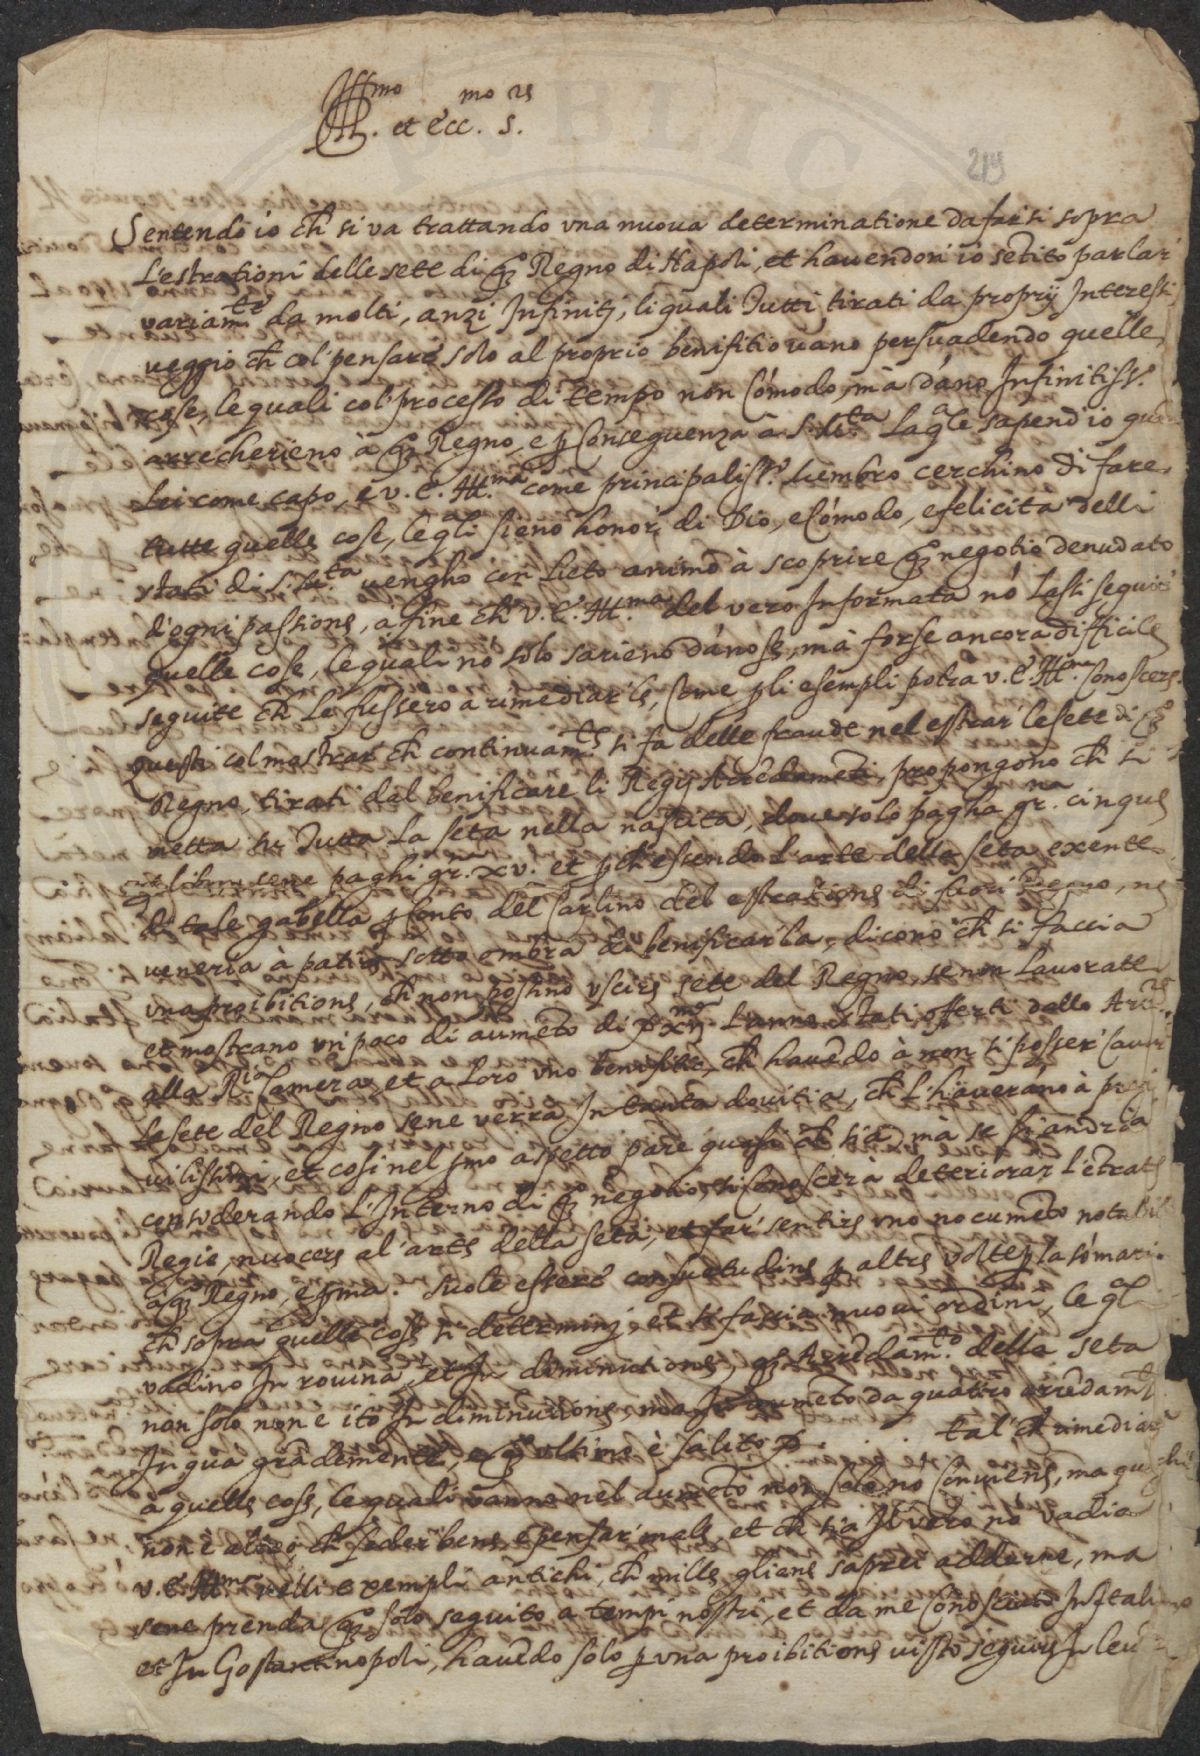 Ill.mo et Ecc.mo S.r
219
Sentendo io ch si va trattando una nuova determinatione da farsi sopra
L'estrationi delle sete di q.o Regno di Napoli, et havendon io sētito parlar
variam.te da molti, anzi Infiniti, li quali Tutti tirati da proprij Interessi
veggio ch col pensare solo al proprio benifitio vano persuadendo quelle
cose, le quali col processo di tempo non Cómodo, mà dáno Infinitiss.o
arrecherieno à q.o Regno, e p Conseguenza à S. M.ta La q.le sapend io
Lei come capo, e v. E. Ill.ma come principaliss.o membro cerchino di fare
tutte quelle cose, le q.li sieno honor di Dio, e Cómodo, e felicita delli
stati di S. M.ta vengho con Lieto animo à scoprire q.o negotio denudato
d'ogni passione, a fine ch v. E. Ill.ma del vero Informata nó Lassi seguire
quelle cose, le quali nó solo sarieno dánose, mà forse ancora difficile
seguite ch Le fussero a rimediarle, Come p li esempli potra v. E. Ill.ma Conoscere
Questi col mostrar ch continuam.te si fa delle fraude nel estrar le sete di q.o
Regno, tirati dal benificare li Regij Arrēdamēti, propongono ch si
metta su Tutta La seta nella nascita, dove solo pagha gr.na cinque
p libra sene paghi gr. xv. et p ch essendo L'arte della seta exente
di tale gabella p conto del Carlino del estratione di fuori Regno, ne
veneria à patire sotto ombra di benificarla, dicono ch si faccia
una proibitione, ch non possino uscire sete del Regno, se non Lavorate
et mostrano un poco di aumēto di L'anno stati offerti dallo
alla R.ia Camera, et a Loro uno benifitio, ch havēdo à non si posser Cavar
Le sete del Regno sene verra In tanta dovitia, ch L'haverano à
vilissimi, et cosi nel p.mo aspetto pare quasi ch sia, mà se si andria
considerando L'Interno di q.o negotio, si conoscerà deteriorar L'ētrate
Regie, nuocere al'arte della seta, et far sentire uno nocumēto notabil
à q.o Regno, e p.ma. Suole essere consuetudine p altre volte p la
ch sopra quelle cose si determini, et si faccia nuovi ordini, le q.li
vadino In rovina, et In diminutione, q.o Arrēdam.to della seta
non solo non è ito In diminutione, ma In aumēto da quattro arrēdam.ti
In qua grādemente, e q.o ultimo è salito . . . . tal' ch rimediare
a quelle cose, le quali vanno nel aumēto non solo nó Conviene, ma
non è altro, ch seder bene, e pensar male, et ch sia Il vero nó vadia
v. E. Ill.ma nelli exempli antichi, ch mille gliene saprei addurre, ma
sene prenda q.o solo seguito a tempi nostri, et da me Conosciuto In Italia
et In Gostantinopoli, havēdo solo p una proibitione visto seguire In